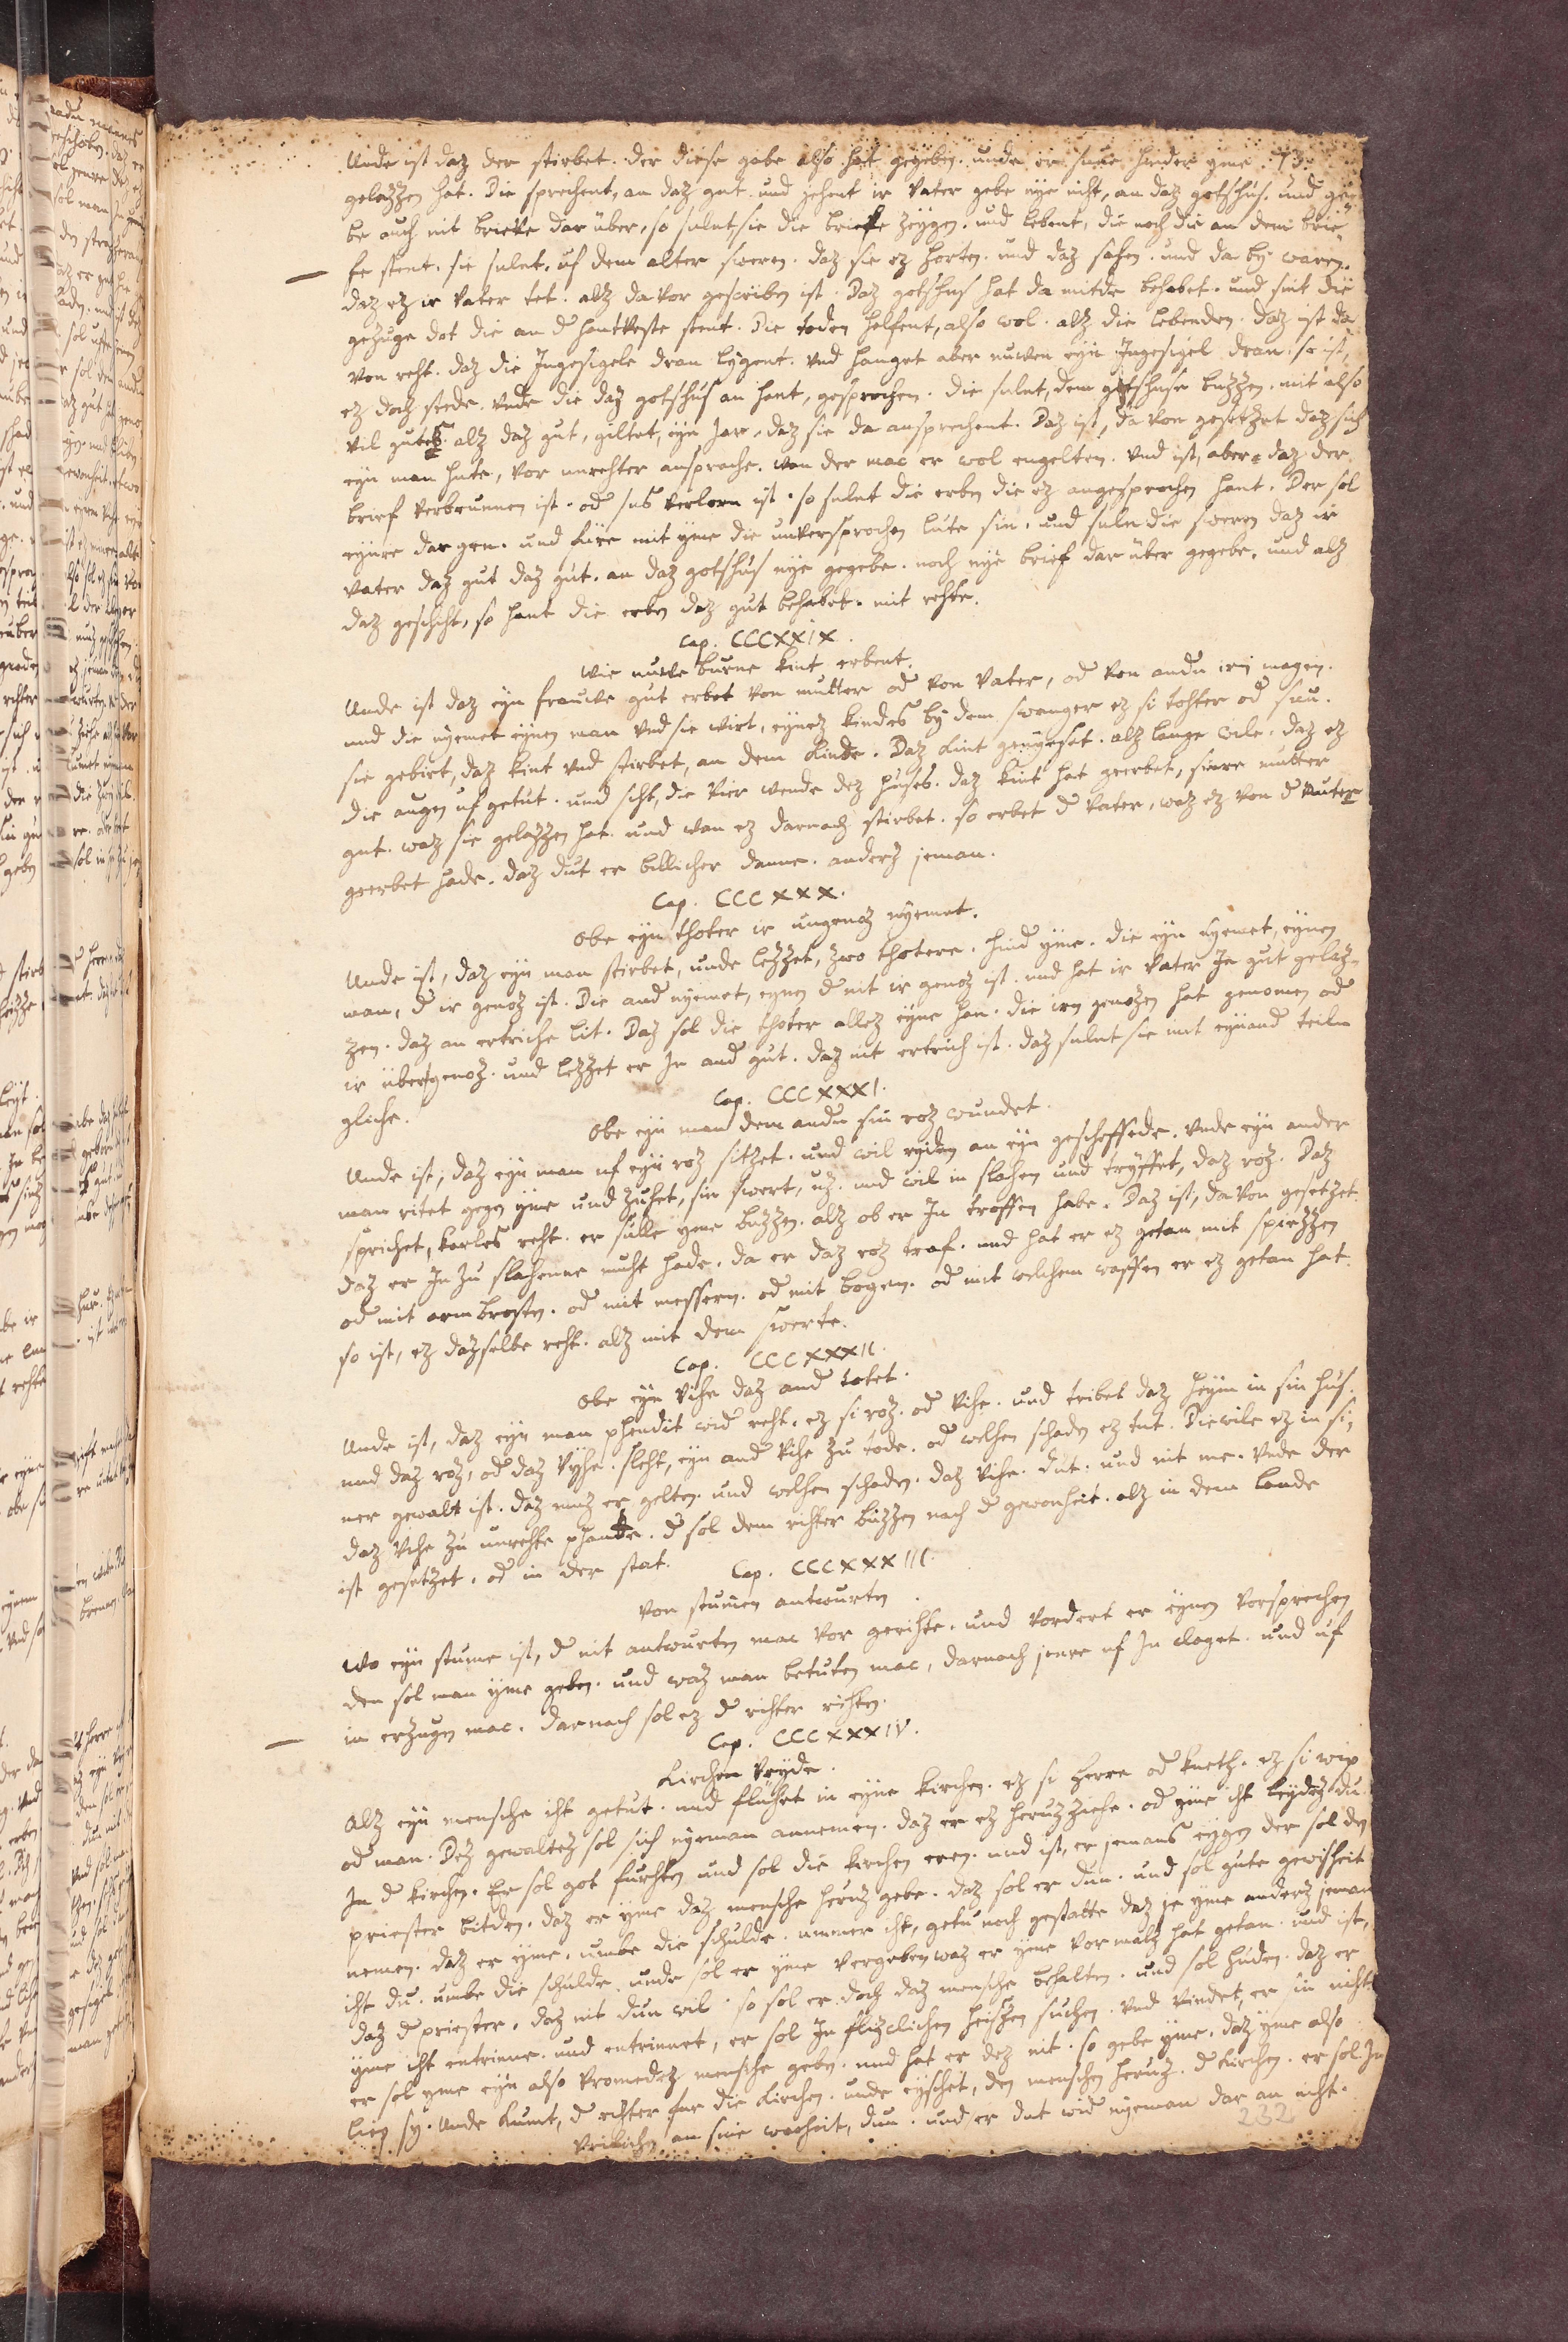 Unde ist daz der stirbet. der diese gabe also hat gegeben. unde er sune hinder yme 73.
gelazzen hat. Die sprechent, an daz gut. und jehent ir vater gebe nye niht, an daz gotshus. und ge=
be auch nit brieve dar über, so sulnt sie die briefe zeygen. und lebent, die noch die an dem brie=
fe stent. sie sulnt, uf dem alter sweren. daz sie ez horten. und daz sahen. und da by waren.
daz ez ir vater tet. alz da vor gescriben ist. Daz gotshus hat da mitde behabet. und sint die
gezuge dot die an d hantveste stent. Die toden helfent, also wol. alz die lebenden. daz ist da
von reht. daz die Ingesigele dran lygent. und hanget aber nuwen eyn Ingesigel dran. so ist,
ez doch stede. unde die daz gotshus an hant, gesprochen. die sulnt, dem gotshuse buzzen. mit also
vil gutes. alz daz gut, giltet, eyn Jar. daz sie da ansprechent. Daz ist, da von gesetzet daz sich
eyn man hute, vor unrehter ansprache. wan der mac er wol engelten. Und ist, aber daz der
brief verbrunnen ist. od sus verlorn ist. so sulnt die erben die ez angesprochen hant. Der sol
eynre dar gen. und fure mit yme die unversprochen lute sin. und suln die sweren daz ir
vater daz gut daz gut. an daz gotshus nye gegebe. noch nye brief dar über gegebe. und alz
daz geschiht, so hant die erben daz gut behabet. mit rehte.
Cap. CCCXXIX.
Wie nuwe burne kint erbent.
Unde ist daz eyn frauwe gut erbet von mutter od von vater, od von andn irn magen.
und die nyemet eynen man und sie wirt, eynez kindes by dem swanger ez si tohter od sun.
sie gebirt, daz kint und stirbet, an dem kinde. Daz kint genyeset. alz lange wile. daz ez
die augen uf getut. und siht, die vier wende dez huses. daz kint hat geerbet, sinre mutter
gut. waz sie gelazzen hat. und wan ez darnach stirbet. so erbet d vater, waz ez von d muter
geerbet hade. daz dut er billicher danne. anderz jeman.
Cap. CCCXXX.
Obe eyn thoter ir ungenoz nyemet.
Unde ist, daz eyn man stirbet, unde lezzet, zwo thotere. hind yme. die eyn nyemet, eynen
man, d ir genoz ist. Die and nyemet, eynen d nit ir genoz ist. und hat ir vater In gut gelaz=
zen. daz an ertriche lit. Daz sol die thoter allez eyne han. die irn genozen hat genomen od
ir ubergenoz. und lezzet er In and gut. daz nit ertrich ist. daz sulnt sie mit eynand teiln
gliche.
Cap. CCCXXXI.
Obe eyn man dem andn sin roz wundet.
Unde ist, daz eyn man uf eyn roz sitzet. und wil ryden an eyn geschefede. unde eyn ander
man ritet gegen yme und zuhet, sin swert, uz. und wil in slahen und tryffet, daz roz. Daz
sprichet, karles reht. er sulle yme buzzen. alz ob er In troffen habe. Daz ist, da von gesetzet.
daz er In zu slahenne muht hade. da er daz roz traf. und hat er ez getan mit spiezzen
od mit armbrosten. od mit messern. od mit bogen. od mit welchem waffen er ez getan hat.
so ist, ez dazselbe reht. alz mit dem swerte.
Cap. CCCXXXII.
Obe eyn vihe daz and totet.
Unde ist, daz eyn man phendit wid reht. ez si roz. od vihe. und tribet daz heym in sin hus.
und daz roz, od daz vyhe. sleht, eyn and vihe zu tode. od welhen schaden ez tut. Diewile ez in si=
ner gewalt ist. daz muz er gelten. und welhen schaden. daz vihe. dut. und nit me. unde der
daz vihe zu unrehte phante. d sol dem rihter buzzen nach d gewonheit. alz in dem lande
ist gesetzet. od in der stat.
Cap. CCCXXXIII.
Von stumen antwurten.
Wo eyn stume ist, d nit antwurten mac vor gerihte. und vordert er eynen vorsprechen
den sol man yme geben. und waz man betuten mac, darnach jenre uf In claget. und uf
in erzugen mac. darnach sol ez d rihter rihten.
Cap. CCCXXXIV.
Kirchen vryde.
Alz eyn mensche iht getut. und fluhet in eyne kirchen. ez si herre od kneth. ez si wip
od man. Dez gewaltez sol sich nyeman annemen. daz er ez heruzziehe. od yme iht leydez du.
In d kirchen. Er sol got furhten und sol die kirchen eren. und ist, er jemans eygen der sol den
priester bitden. daz er yme daz mensche heruz gebe. daz sol er dun. und sol gute gewisheit
nemen. daz er yme. umbe die schulde. nimmer iht, getu noch gestatte daz ez yme anderz jeman
iht du. umbe die schulde. unde sol er yme vergeben waz er yme vormalz hat getan. und ist,
daz d priester. daz nit dun wil. so sol er doch daz mensche behalten. und sol huden. daz er
yme iht entrinne. und entrinnet, er sol In flizclichen heiszen suchen. und vindet, er sin niht.
er sol yme eyn also vromedez mensche geben. und hat er dez nit. so gebe yme. daz yme also
liep sy. Unde kumt, d rihter fur die kirchen. unde eyschet, den menschen heruz. d kirchen. er sol In
vrilichen an sine warheit, dun. und er dut wid nyeman dar an niht.
232